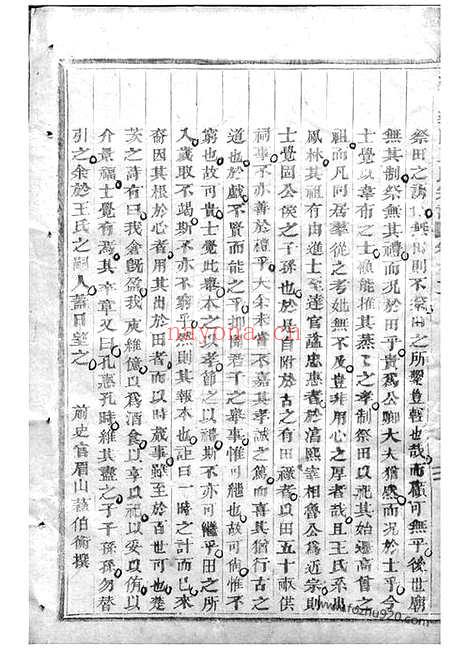 祭田之詩無田則不祭田之所繫豈輕也哉而禮可無乎後世廟
無其制祭無其禮而况於田乎貴為公卿大夫猶感而况於士乎今
士覺以韋布之士漁能推其蒸之之孝制祭田以祀其始遷高曾之
祖而凡同居羣從之考妣無不及豈非用心之厚者哉且王氏系出
鳳林其祖有由進士至達官謚忠惠者於淯熙宰相魯公為近宗則
士覺固公侯之子孫也於是自附於古之有田祿者以田五十畝供
祠事不亦善於禮乎大余未嘗不嘉其孝誠之篤而喜其猶行古之
道也於戲不賢而能之乎抑君子之舉事惟可繼也故可尚惟不
窮也故可貴士覺此舉本之以孝節之以禮斯不亦可繼乎田之所
入歲取不竭斯不亦不窮乎然則其報本也詎曰一時之計而已來
裔因其根於心者用其出於田者而以時歲事雖至於百世可也楚
茨之詩有曰我倉既盈我庾維億以為酒食以享以祀以妥以侑以
介景福士覺有焉其卒章又曰孔惠孔時維其盡之子子孫孫勿替
引之余於王氏之嗣人蓋日望之
前史官眉山蘇伯衡撰
nayona.cn
www.fozhu920.com